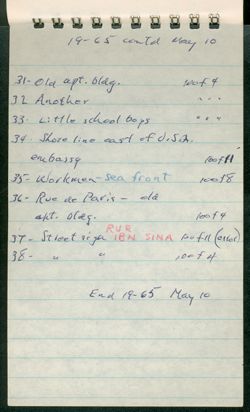 19-65 contd May 10
31- Old apt. bldg. 100 f 4
32 Another " " "
33- Little school boys " " "
34- Shore line east of U.S.A.
embassy 100 f 11
35- Workmen - sea front 100 f 8
36- Rue de Paris - old
apt. bldg. 100 f 4
RUE
37- Street sign IBN SINA 100 f 11 (error)
38- " " 100 f 4
End 19-65 May 10